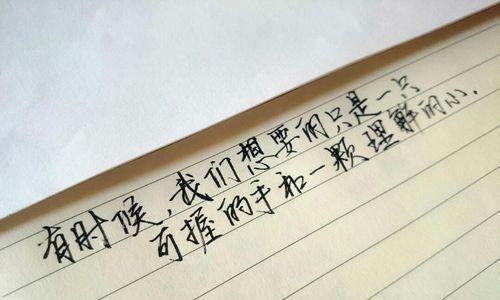 有时候，我们想要的只是一只
可握的手和一颗理解的心.